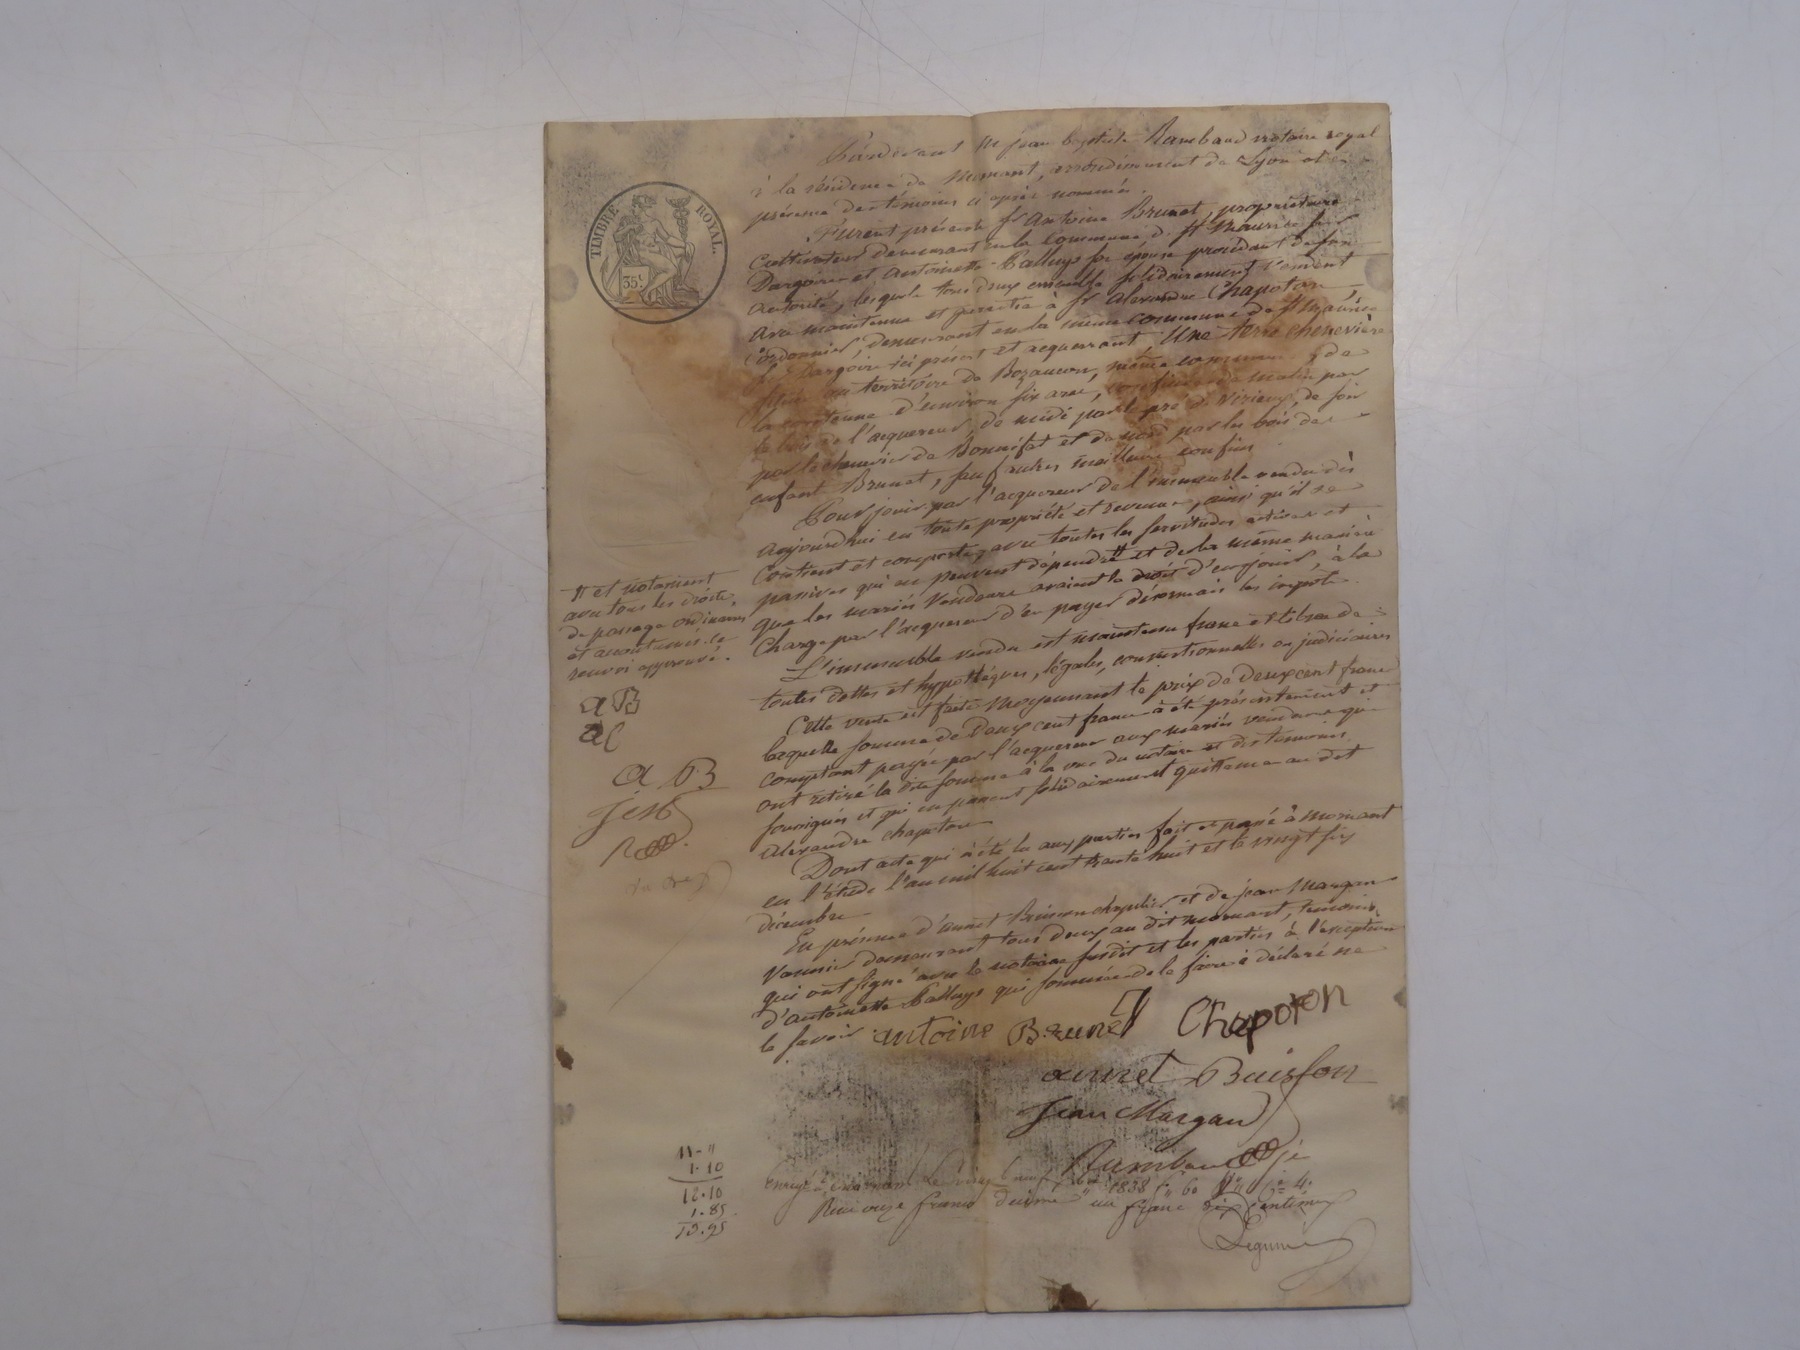 TIMBRE ROYAL
35c
Pardevant Me jean baptiste Rambaud notaire royal
à la résidence de Mornant, arrondissement de Lyon et en
présence des témoins ci après nommés.
Furent présents sr Antoine Brunet propriétaire
cultivateur demeurant en la Commune de St Maurice sur
Dargoire et Antoinette Calluys sa épouse procédant de son
autorité, lesquels tous deux ensemble solidairement vendent
avec maintenue et garantie à sr Alexandre Chapoton,
Cordonnier, demeurant en la même Commune de St Maurice
sr Dargoire ici présent et acquerrant Une terre chenevière
située au territoire de Bozançon, même commune, de
la contenue d'environ six ares, confinée de matin par
le bois de l'acquereur, de midi par le pré de Virieux, de soir
par la chenevier de Bonnefat et de nord par les bois des
enfant Brunet, sauf autres meilleurs confins
Pour jouir par l'acquereur de l'immeuble vendu dès
aujourdhui en toute propriété et revenus, ainsi qu'il se
Contient et comporte, avec toutes les servitudes actives et
passives qui en peuvent dépendre # et de la même manière
que les mariés Vendeurs avaient le droit d'en jouir, à la
Charge par l'acquereur d'en payer désormais les impots.
# et notament
avec tous les droits
de passage ordinaires
et accoutumés le
renvoi approuvé.
a B
aC
a B
L'immeuble vendu est maintenu franc et libre de
toutes dettes et hypothèques, légales, conventionnelles ou judiciaires
Cette vente est faite Moyennant le prix de deux cent francs
laquelle somme de Deux cent francs a été présentement et
comptant payée par l'acquereur aux mariés vendeurs qui
ont retiré la dite somme à la vue du notaire et des temoins
soussignés et qui en passent solidairement quittance au dit
Alexandre chapoton
Dont acte qui a été lu aux parties fait et passé à Mornant
en l'Etude l'an mil huit cent trente huit et le vingt six
décembre
En présence d'annet Buisson chapelier et de jean Margan
Vannier demeurant tous deux au dit Mornant, temoins
qui ont signé avec le notaire susdit et les parties à l'exception
d'antoinette Calluys qui sommée de le faire à déclaré ne
le savoir
antoine Brunet Chapoton
annet Buisson
Jean Margan
Rambaud
11-"
1.10
12.10
1.85
13.95
Enregé à Mornant Le vingt neuf Xbre 1838 fo 60 Vo Co 4.
Reçu onze francs décime un franc dix Centimes